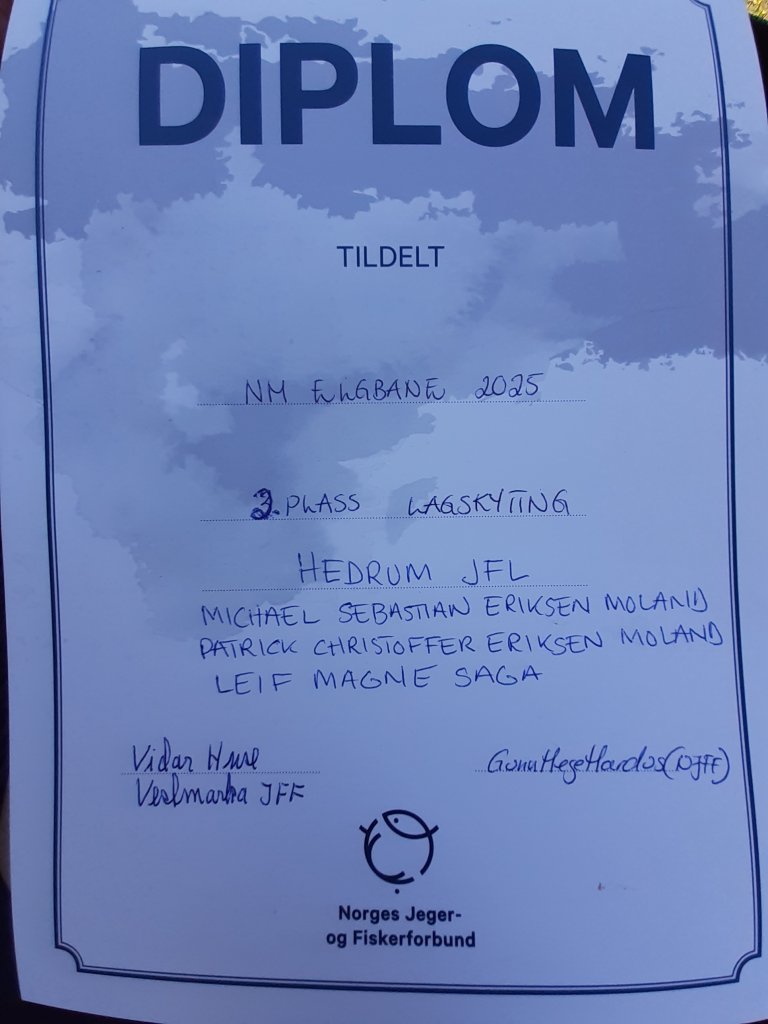 DIPLOM
TILDELT
NM ELGBANE 2025
3. PLASS LAGSKYTING
HEDRUM JFL
MICHAEL SEBASTIAN ERIKSEN MOLAND
PATRICK CHRISTOFFER ERIKSEN MOLAND
LEIF MAGNE SAGA
Vidar
Veslmarka JFF
Norges Jeger-
og Fiskerforbund